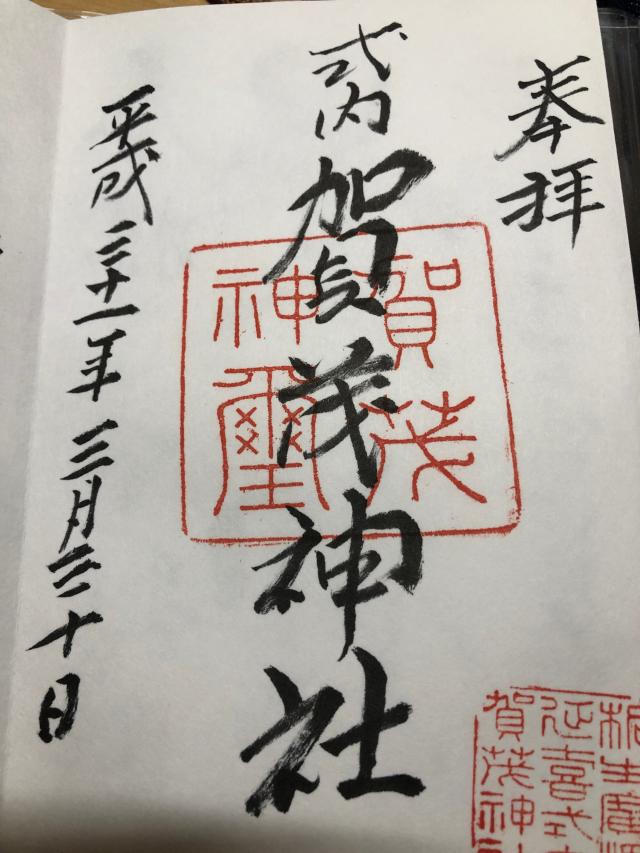 奉拝
式内
賀茂神社
賀茂
神璽
平成三十一年三月三十日
延喜式
賀茂神